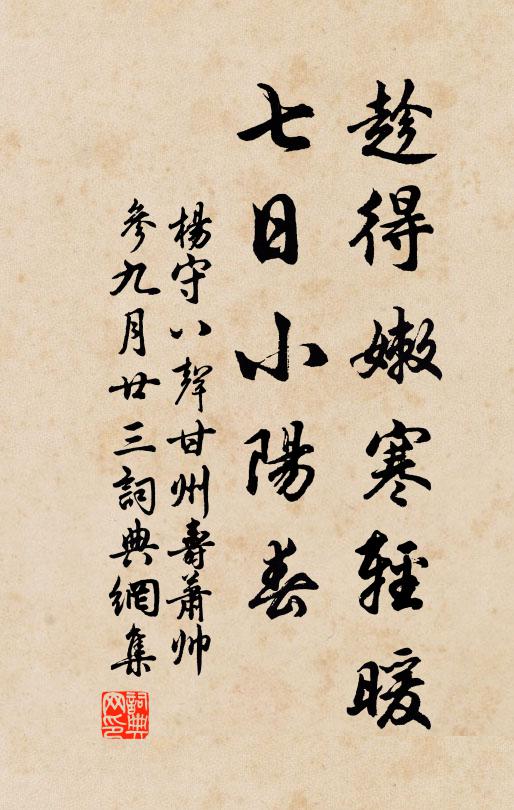 趁得嫩寒輕暖
七日小陽春
楊守八聲甘州壽蕭帅
參九月廿三詞典網集
詞典
网印